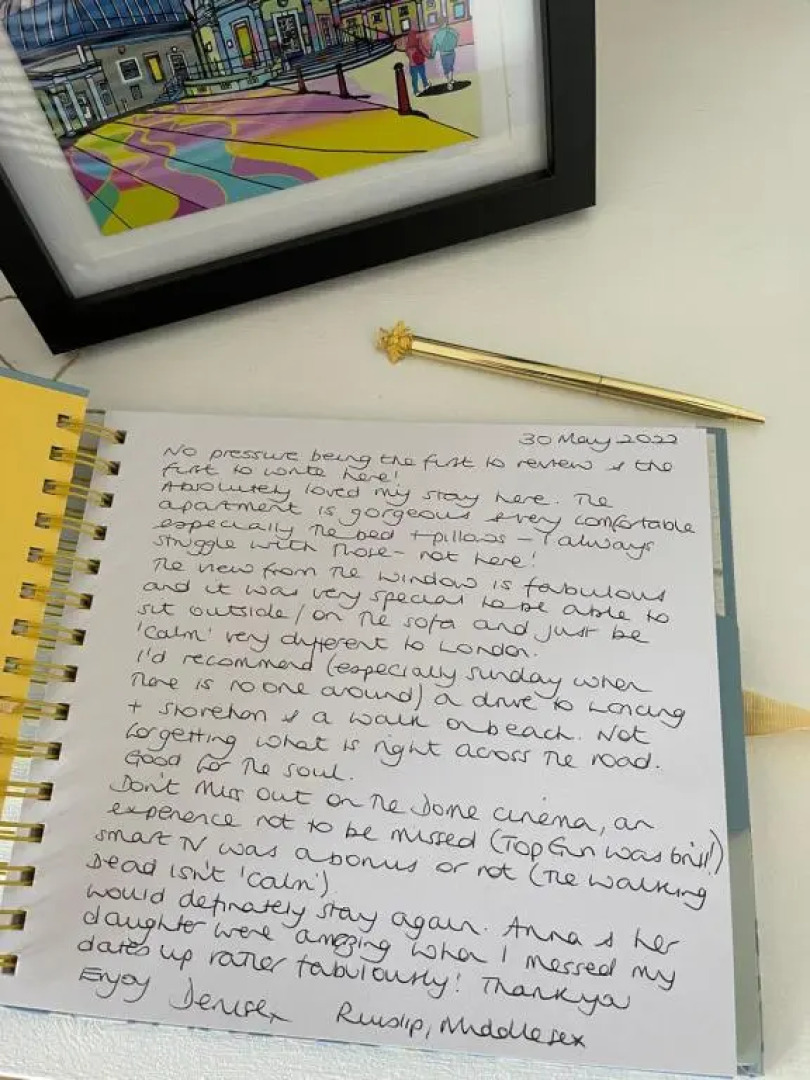 30 May 2022
No pressure being the first to review & the
first to write here!
Absolutely loved my stay here. The
apartment is gorgeous & very comfortable
especially the bed + pillows - I always
struggle with those - not here!
The view from the window is fabulous
and it was very special to be able to
sit outside / on the sofa and just be
'calm' very different to London.
I'd recommend (especially Sunday when
there is no one around) a drive to Lancing
+ Shoreham & a walk on beach. Not
forgetting what is right across the road.
Good for the soul.
Don't miss out on the Dome cinema, an
experience not to be missed (Top Gun was brill!)
smart TV was a bonus or not (The Walking
Dead isn't 'calm')
would definately stay again. Anna & her
daughter were amazing when I messed my
dates up rather fabulously! Thankyou
Enjoy Denise x Ruislip, Middlesex